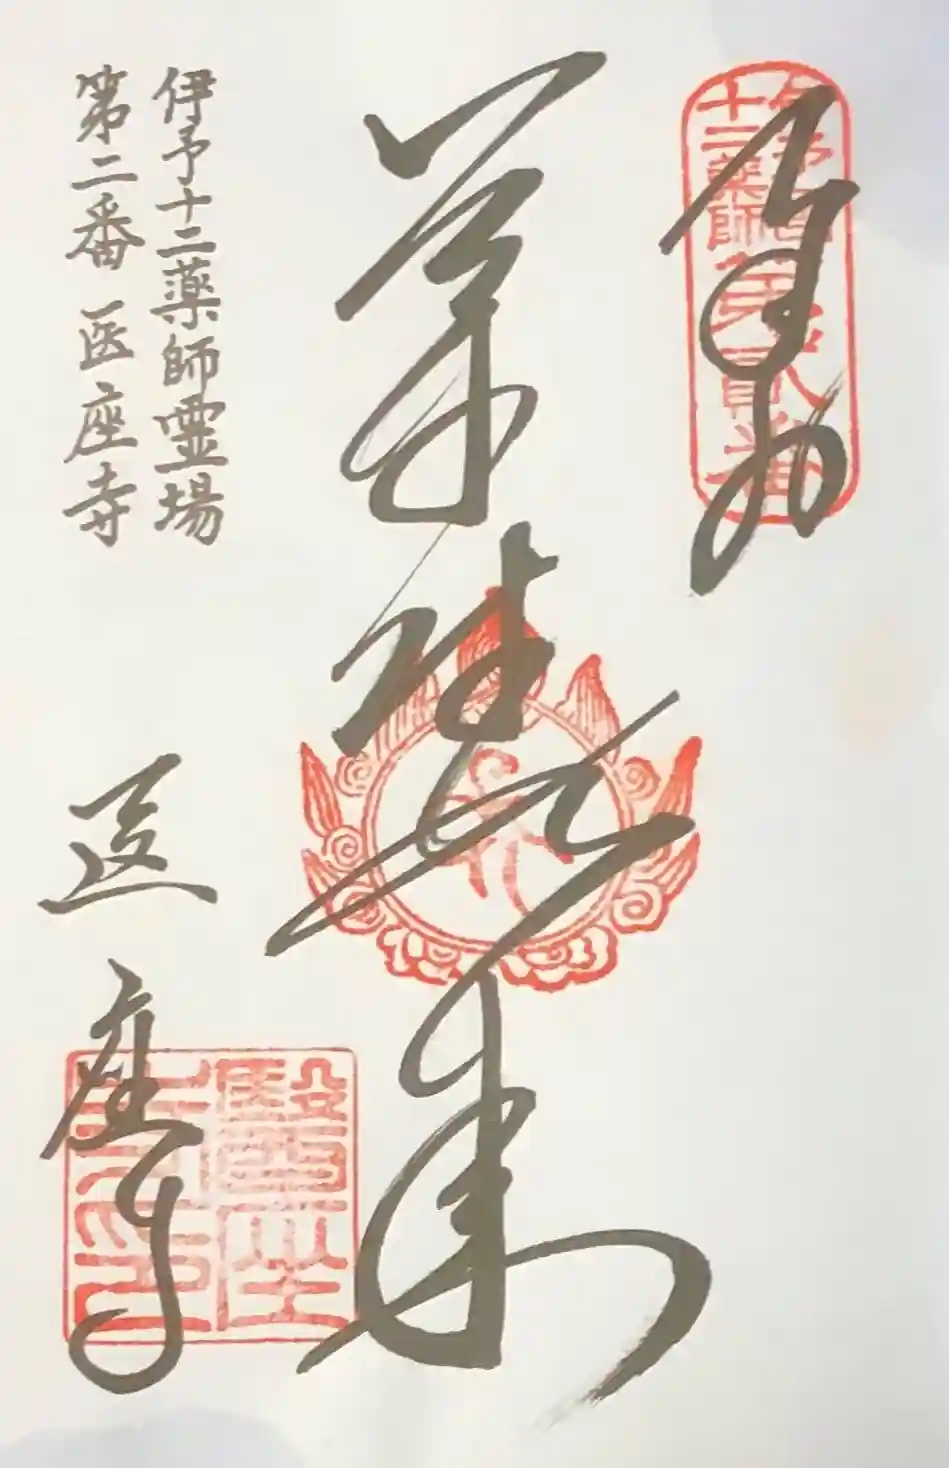 奉拝
伊予国
十二薬師
第貳番
薬師如来
伊予十二薬師霊場
第二番 医座寺
医座寺
醫座
寺印